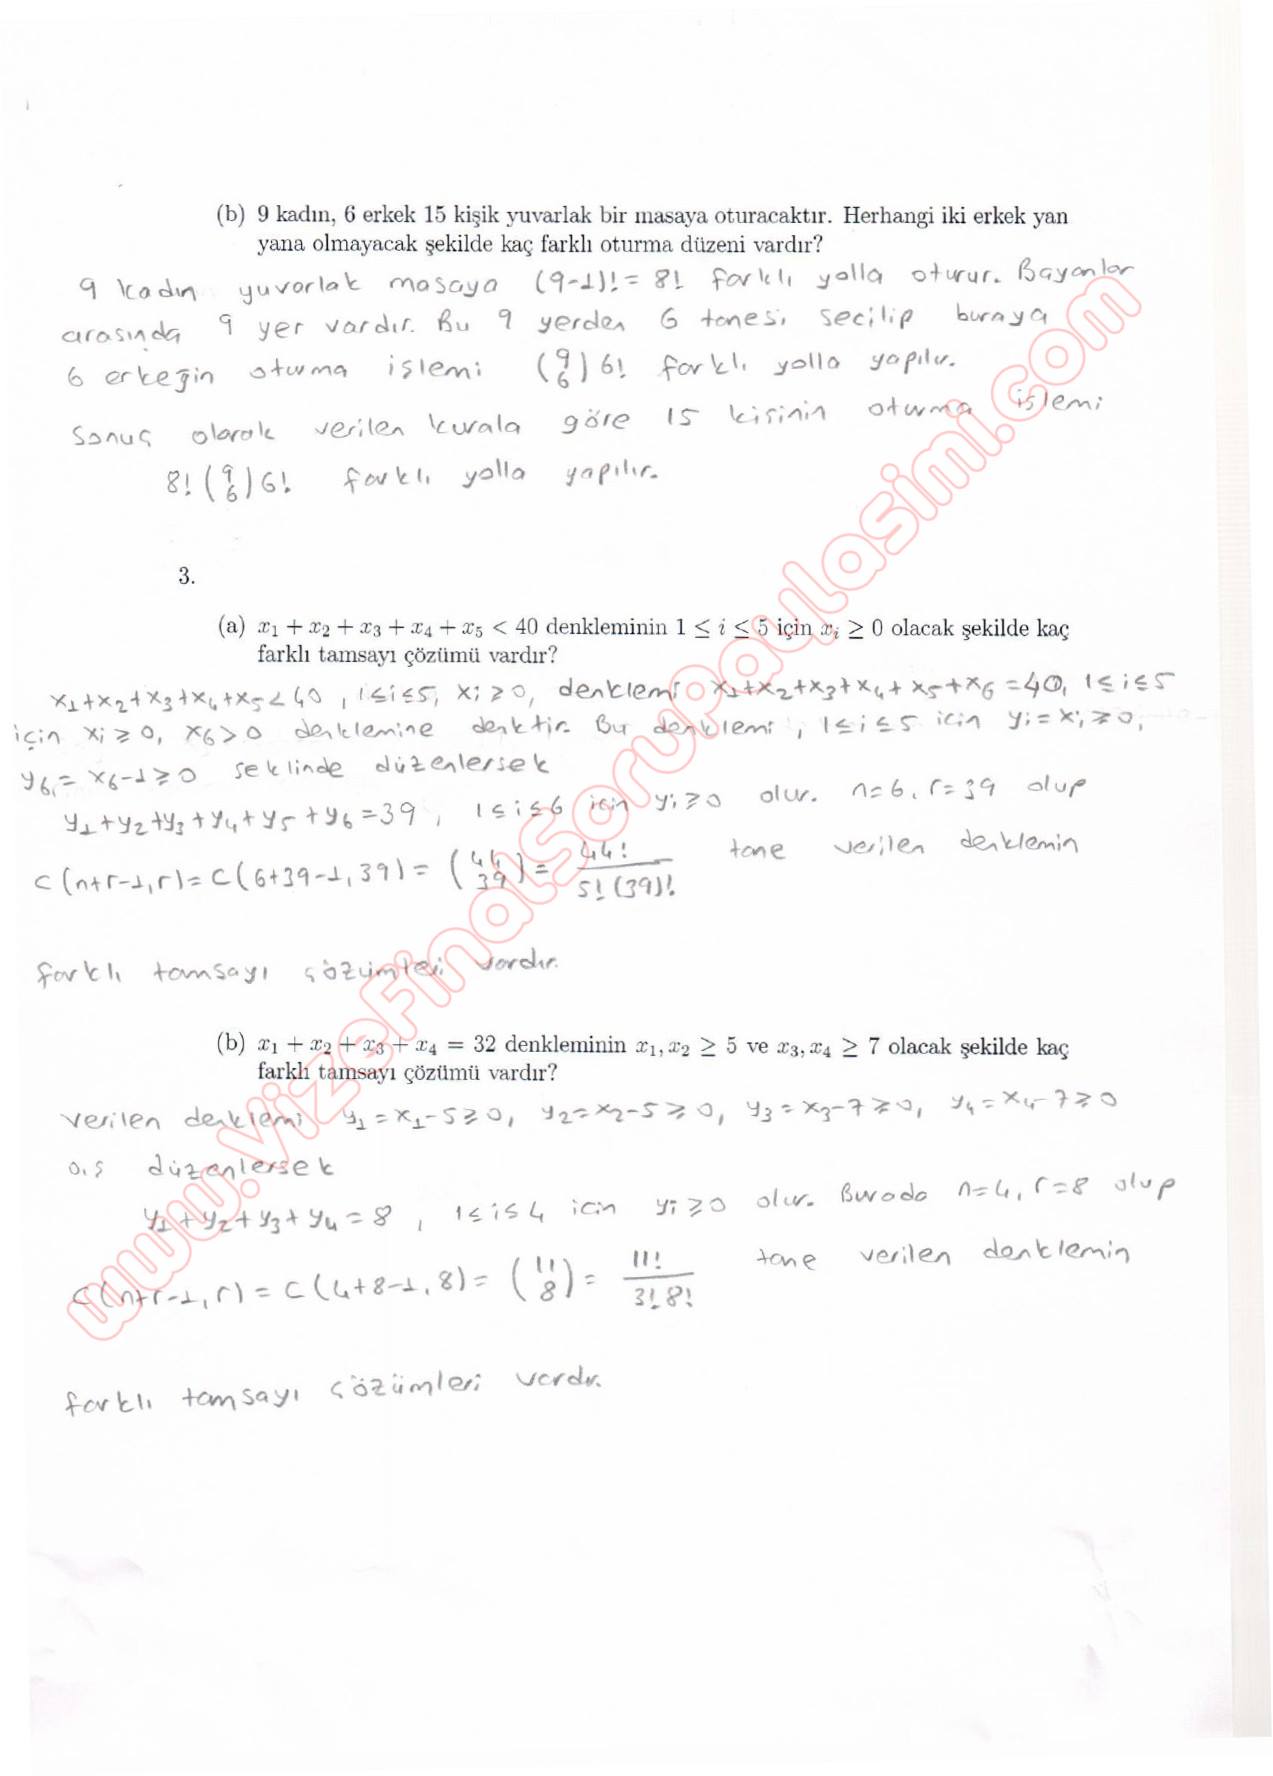 (b) 9 kadın, 6 erkek 15 kişik yuvarlak bir masaya oturacaktır. Herhangi iki erkek yan
yana olmayacak şekilde kaç farklı oturma düzeni vardır?
9 kadın yuvarlak masaya (9-1)! = 8! farklı yolla oturur. Bayanlar
arasında 9 yer vardır. Bu 9 yerden 6 tanesi secilip buraya
6 erkeğin oturma işlemi (9 6) 6! farklı yolla yapılır.
Sonuç olarak verilen kurala göre 15 kişinin oturma işlemi
8! (9 6) 6! farklı yolla yapılır.
3.
(a) x₁ + x₂ + x₃ + x₄ + x₅ < 40 denkleminin 1 ≤ i ≤ 5 için xᵢ ≥ 0 olacak şekilde kaç
farklı tamsayı çözümü vardır?
x₁+x₂+x₃+x₄+x₅<40, 1≤i≤5, xᵢ≥0, denklemi x₁+x₂+x₃+x₄+x₅+x₆=40, 1≤i≤5
için xᵢ≥0, x₆>0 denklemine denktir. Bu denklemi, 1≤i≤5 icin yᵢ=xᵢ≥0,
y₆=x₆-1≥0 seklinde düzenlersek
y₁+y₂+y₃+y₄+y₅+y₆=39, 1≤i≤6 icin yᵢ≥0 olur. n=6, r=39 olup
C(n+r-1,r)=C(6+39-1,39)=(44 39)=44!/5!(39)! tane verilen denklemin
farklı tamsayı çözümleri vardır.
(b) x₁ + x₂ + x₃ + x₄ = 32 denkleminin x₁, x₂ ≥ 5 ve x₃, x₄ ≥ 7 olacak şekilde kaç
farklı tamsayı çözümü vardır?
verilen denklemi y₁=x₁-5≥0, y₂=x₂-5≥0, y₃=x₃-7≥0, y₄=x₄-7≥0
o.ş düzenlersek
y₁+y₂+y₃+y₄=8, 1≤i≤4 icin yᵢ≥0 olur. Burada n=4, r=8 olup
C(n+r-1,r)=C(4+8-1,8)=(11 8)=11!/3!8! tane verilen denklemin
farklı tamsayı çözümleri vardır.
www.VizeFinalSoruPaylasimi.com